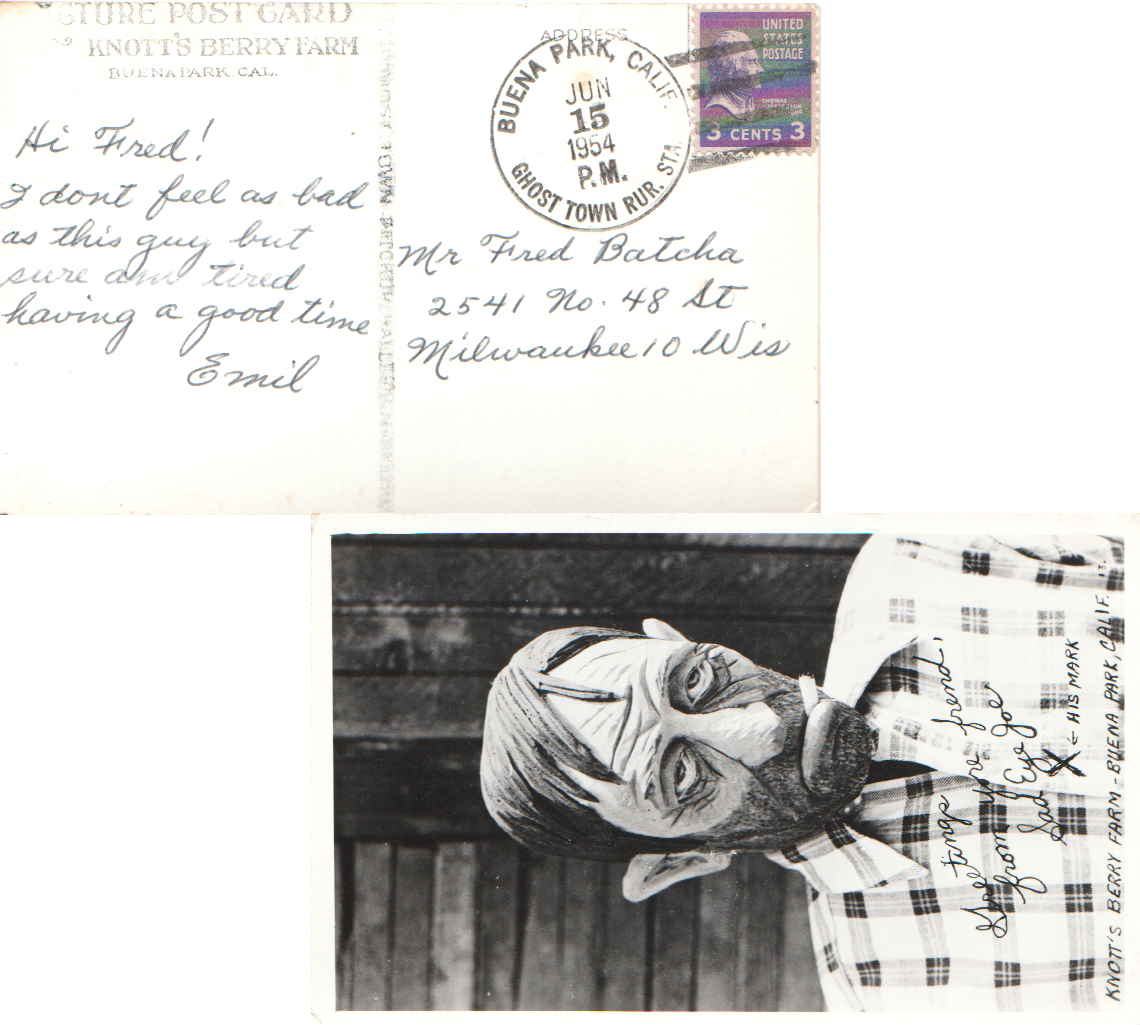 TURE POST CARD
KNOTT'S BERRY FARM
BUENA PARK, CAL.
Hi Fred!
I dont feel as bad
as this guy but
sure am tired
having a good time
Emil
ADDRESS
BUENA PARK, CALIF.
JUN
15
1954
P.M.
GHOST TOWN RUR. STA.
UNITED
STATES
POSTAGE
THOMAS
JEFFERSON
3 CENTS 3
Mr Fred Batcha
2541 No. 48 St
Milwaukee 10 Wis
Greetangs youre frend,
from
Sad Eye Joe
X ← HIS MARK
KNOTT'S BERRY FARM - BUENA PARK, CALIF.